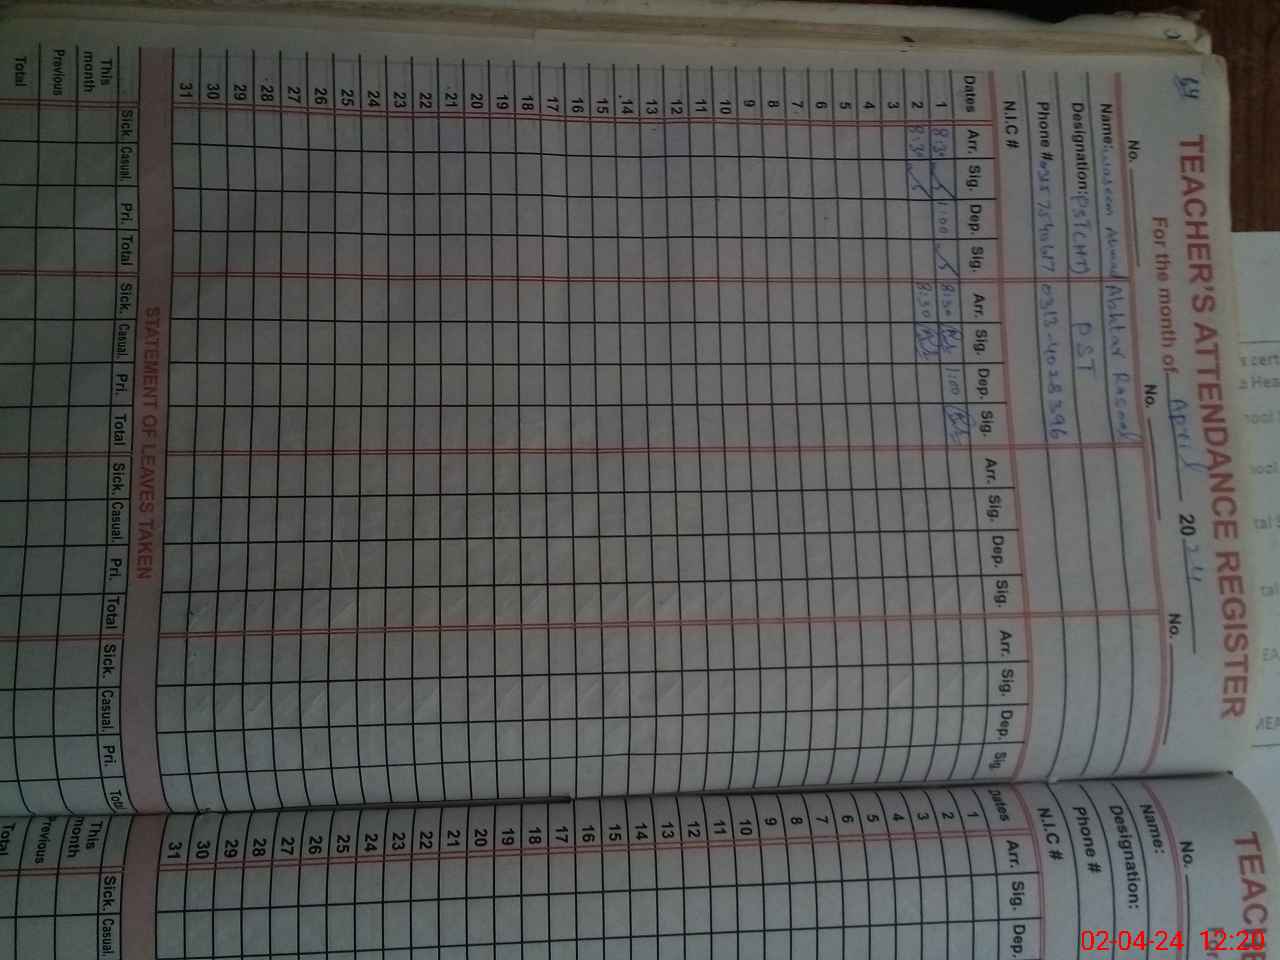 64
TEACHER'S ATTENDANCE REGISTER
For the month of April 2024
No. No. No.
Name: Waseem Ahmad Akhtar Rasool
Designation: PST(HT) PST
Phone # 0313-4028396
N.I.C #
Dates Arr. Sig. Dep. Sig. Arr. Sig. Dep. Sig. Arr. Sig. Dep. Sig. Arr. Sig. Dep. Sig.
1 8:30 1:00 8:30 1:00
2 8:30 8:30
3
4
5
6
7
8
9
10
11
12
13
14
15
16
17
18
19
20
21
22
23
24
25
26
27
28
29
30
31
STATEMENT OF LEAVES TAKEN
Sick. Casual. Pri. Total Sick. Casual. Pri. Total Sick. Casual. Pri. Total Sick. Casual. Pri. Total
This month
Previous
Total
TEACHE
No.
Name:
Designation:
Phone #
N.I.C #
Dates Arr. Sig. Dep.
1
2
3
4
5
6
7
8
9
10
11
12
13
14
15
16
17
18
19
20
21
22
23
24
25
26
27
28
29
30
31
Sick. Casual.
This month
Previous
Total
02-04-24 12:20